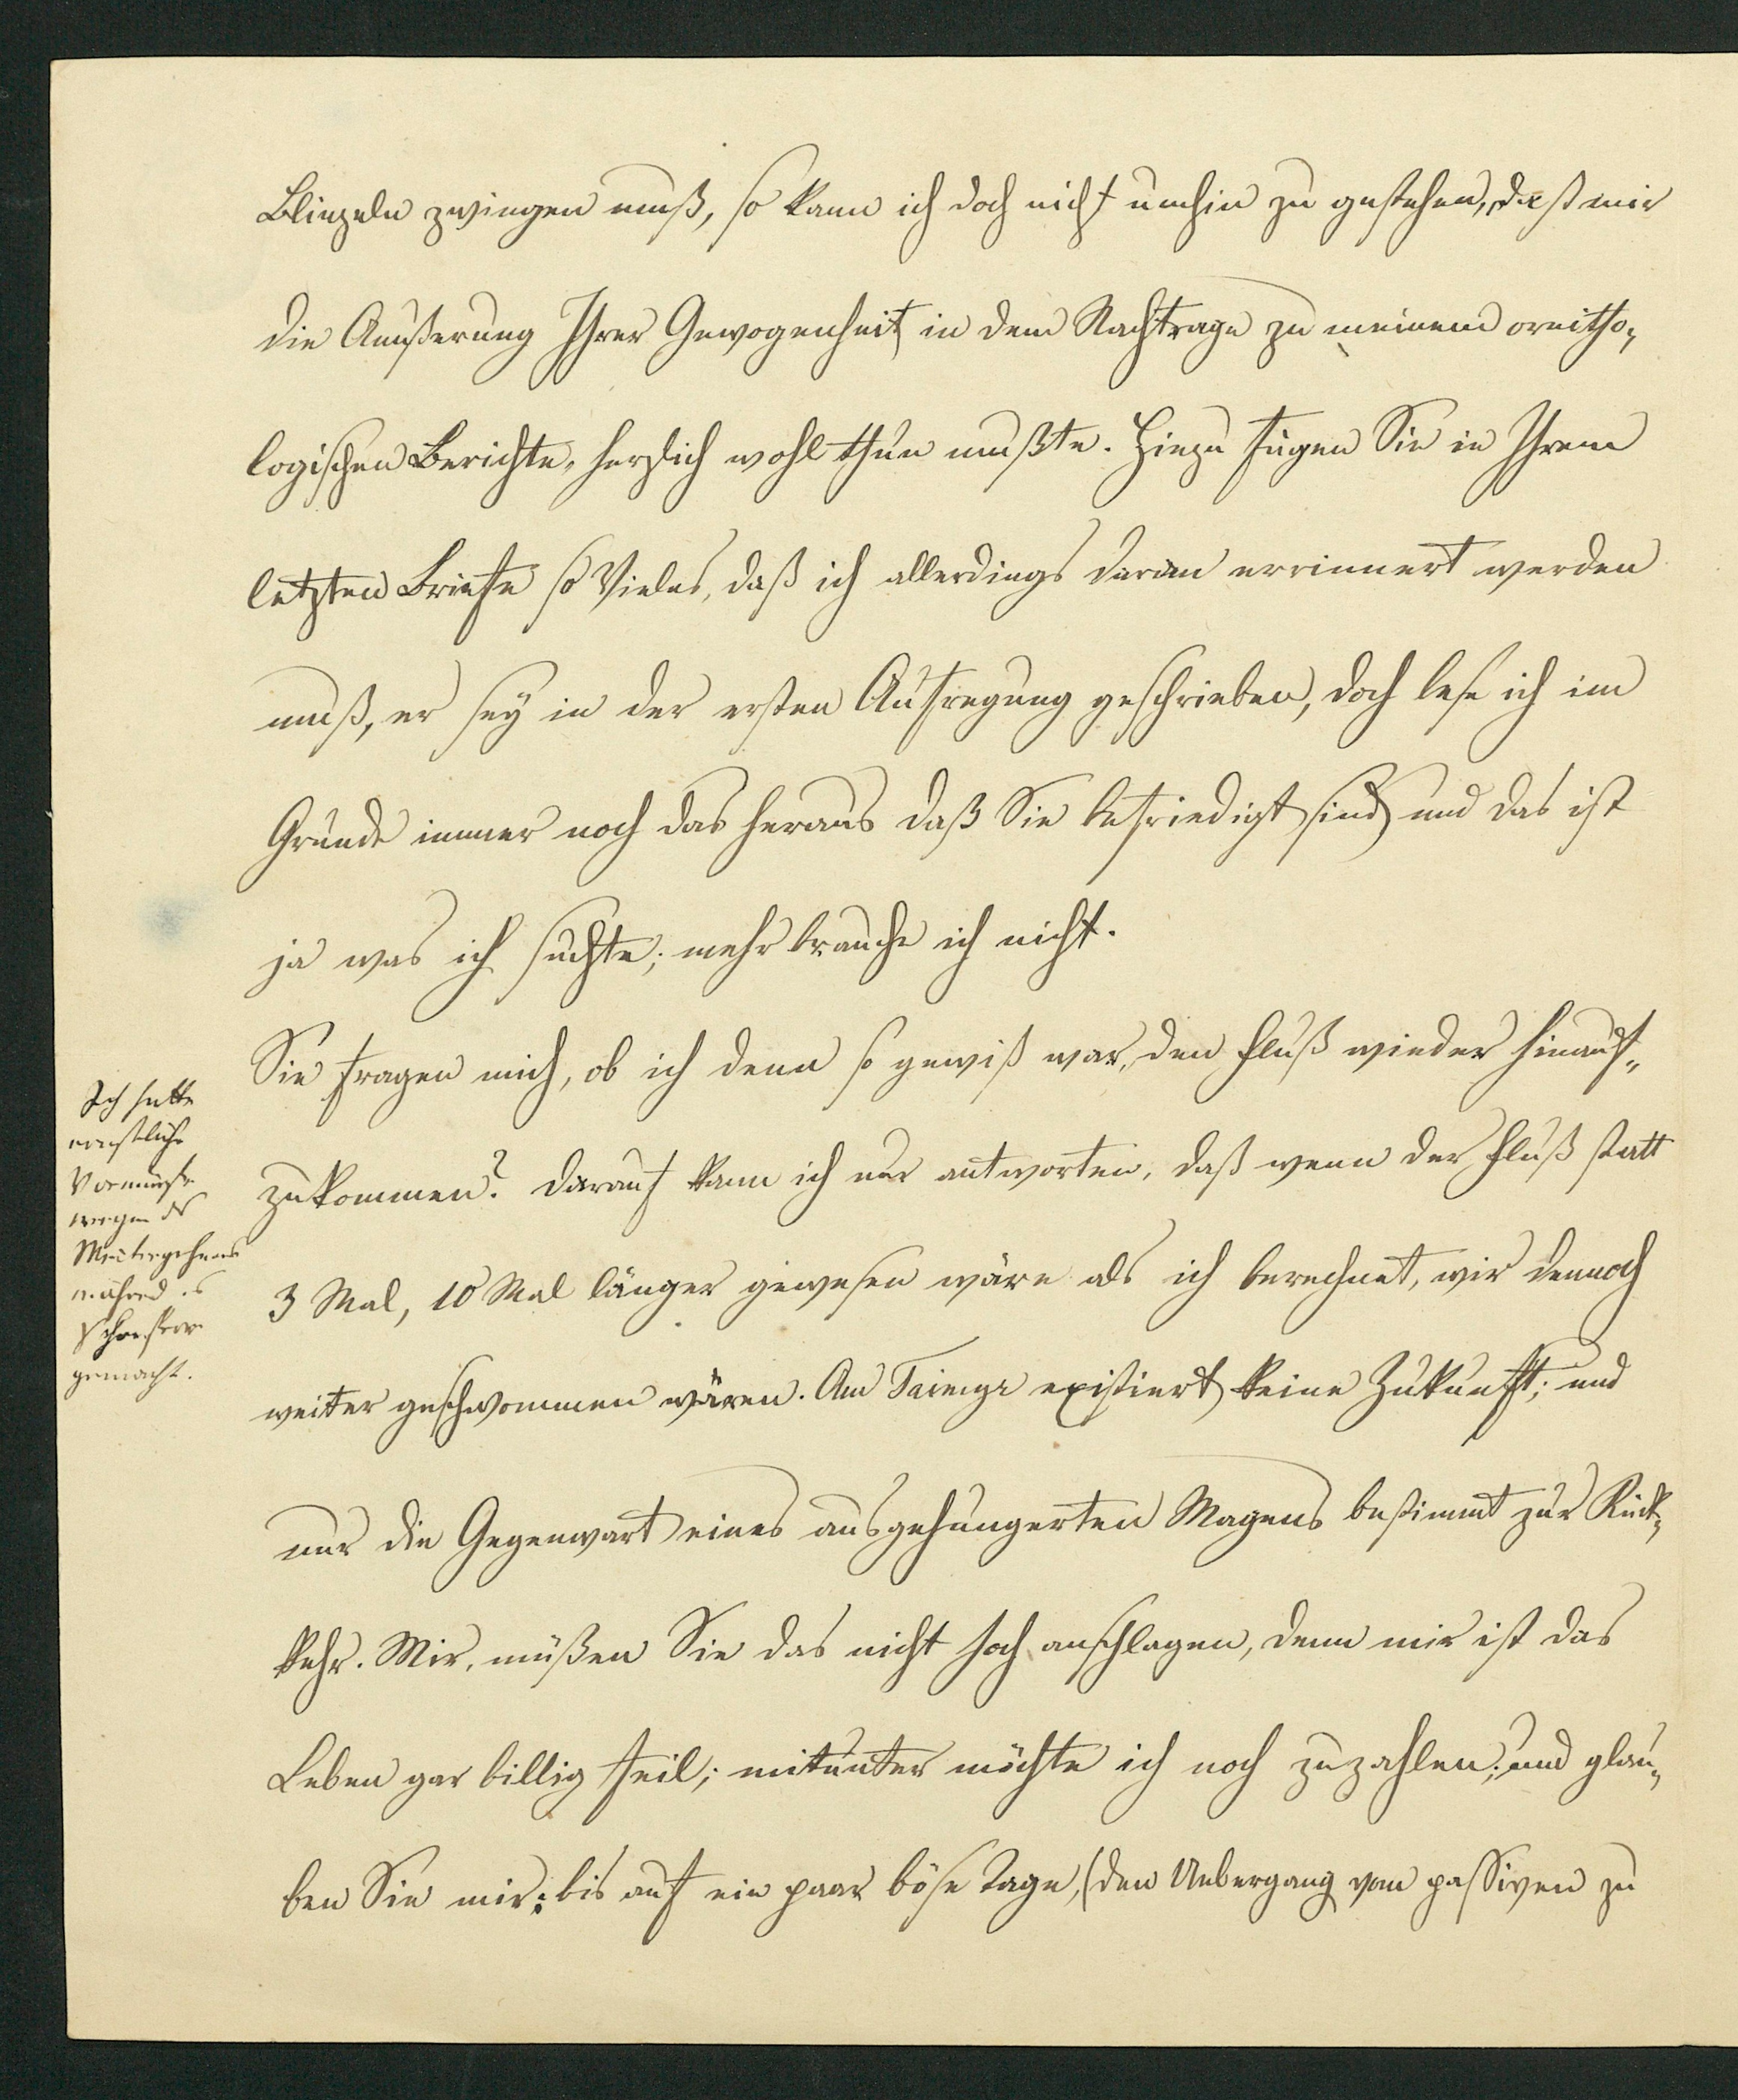 Blinzeln zwingen muß, so kann ich doch nicht umhin zu gestehen, daß mir
die Aeußerung Ihrer Gewogenheit in dem Nachtrage zu meinem ornitho-
logischen Berichte, herzlich wohl thun mußte. Hinzu fügen Sie in Ihrem
letzten Briefe so Vieles, daß ich allerdings daran errinnert werden
muß, er sey in der ersten Aufregung geschrieben, doch lese ich im
Grunde immer noch das heraus daß Sie befriedigt sind und das ist
ja was ich suchte; mehr brauche ich nicht.
Sie fragen mich, ob ich denn so gewiß war, den Fluß wieder hinauf-
zukommen? darauf kann ich nur antworten, daß wenn der Fluß statt
3 Mal, 10 Mal länger gewesen wäre als ich berechnet, wir dennoch
weiter geschwommen wären. Am Taimyr existiert keine Zukunft; und
nur die Gegenwart eines ausgehungerten Magens bestimmt zur Rück-
kehr. Mir, müßen Sie das nicht hoch anschlagen, denn mir ist das
Leben gar billig feil; mitunter möchte ich noch zuzahlen; und glau-
ben Sie mir: bis auf ein paar böse Tage, (den Uebergang vom passiven zu
Ich hatte
ernstliche
Vorwürfe
wegen des
Weitergehens
während
gemacht.